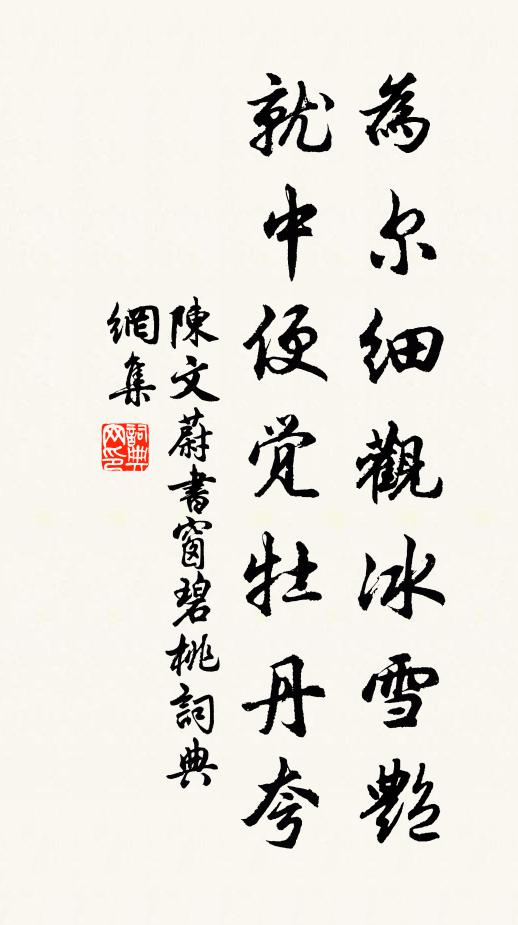 為尔细觀冰雪艷
就中便觉牡丹夸
陳文蔚書窗碧桃詞典
網集
詞典
网印